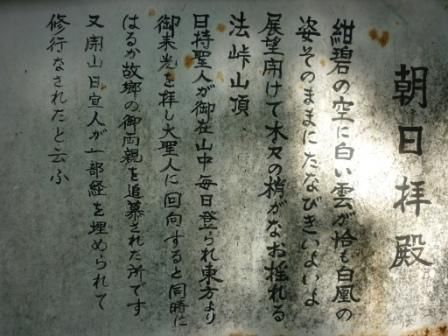 朝日拝殿
紺碧の空に白い雲が恰も白凰の
姿そのままにたなびきいよいよ
展望開けて木々の梢がなお揺れる
法峠山頂
日持聖人が御在山中毎日登られ東方より
御来光を拝し大聖人に回向すると同時に
はるか故郷の御両親を追慕された所です
又開山日宣人が一部経を埋められて
修行なされたと云ふ